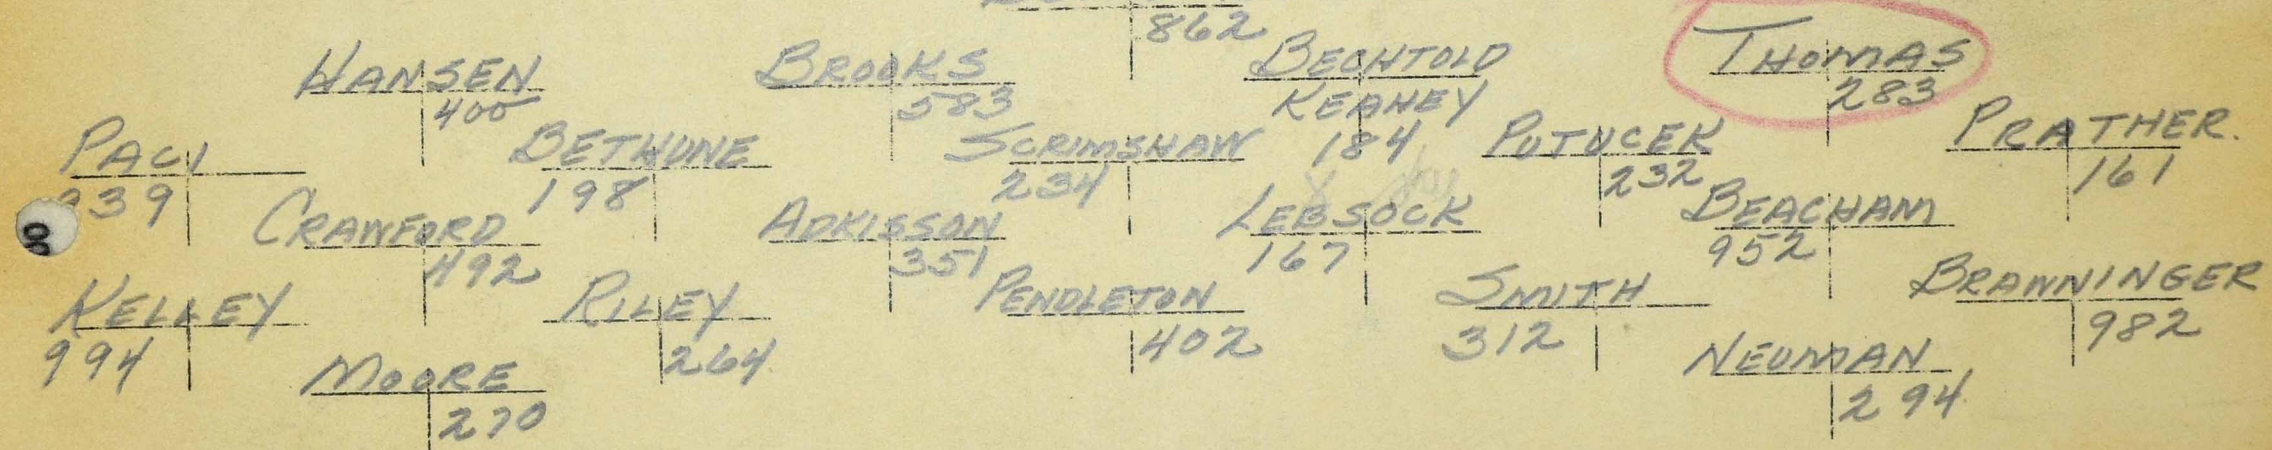 862
HANSEN
400
BROOKS
583
BECHTOLD
KEAHEY
184
THOMAS
283
PACI
239
BETHUNE
198
SCRIMSHAW
234
PUTUCEK
232
PRATHER.
161
CRAWFORD
492
ADKISSON
351
LEBSOCK
167
BEACHAM
952
KELLEY
994
RILEY
264
PENDLETON
402
SMITH
312
BRANNINGER
982
MOORE
270
NEUMAN
294